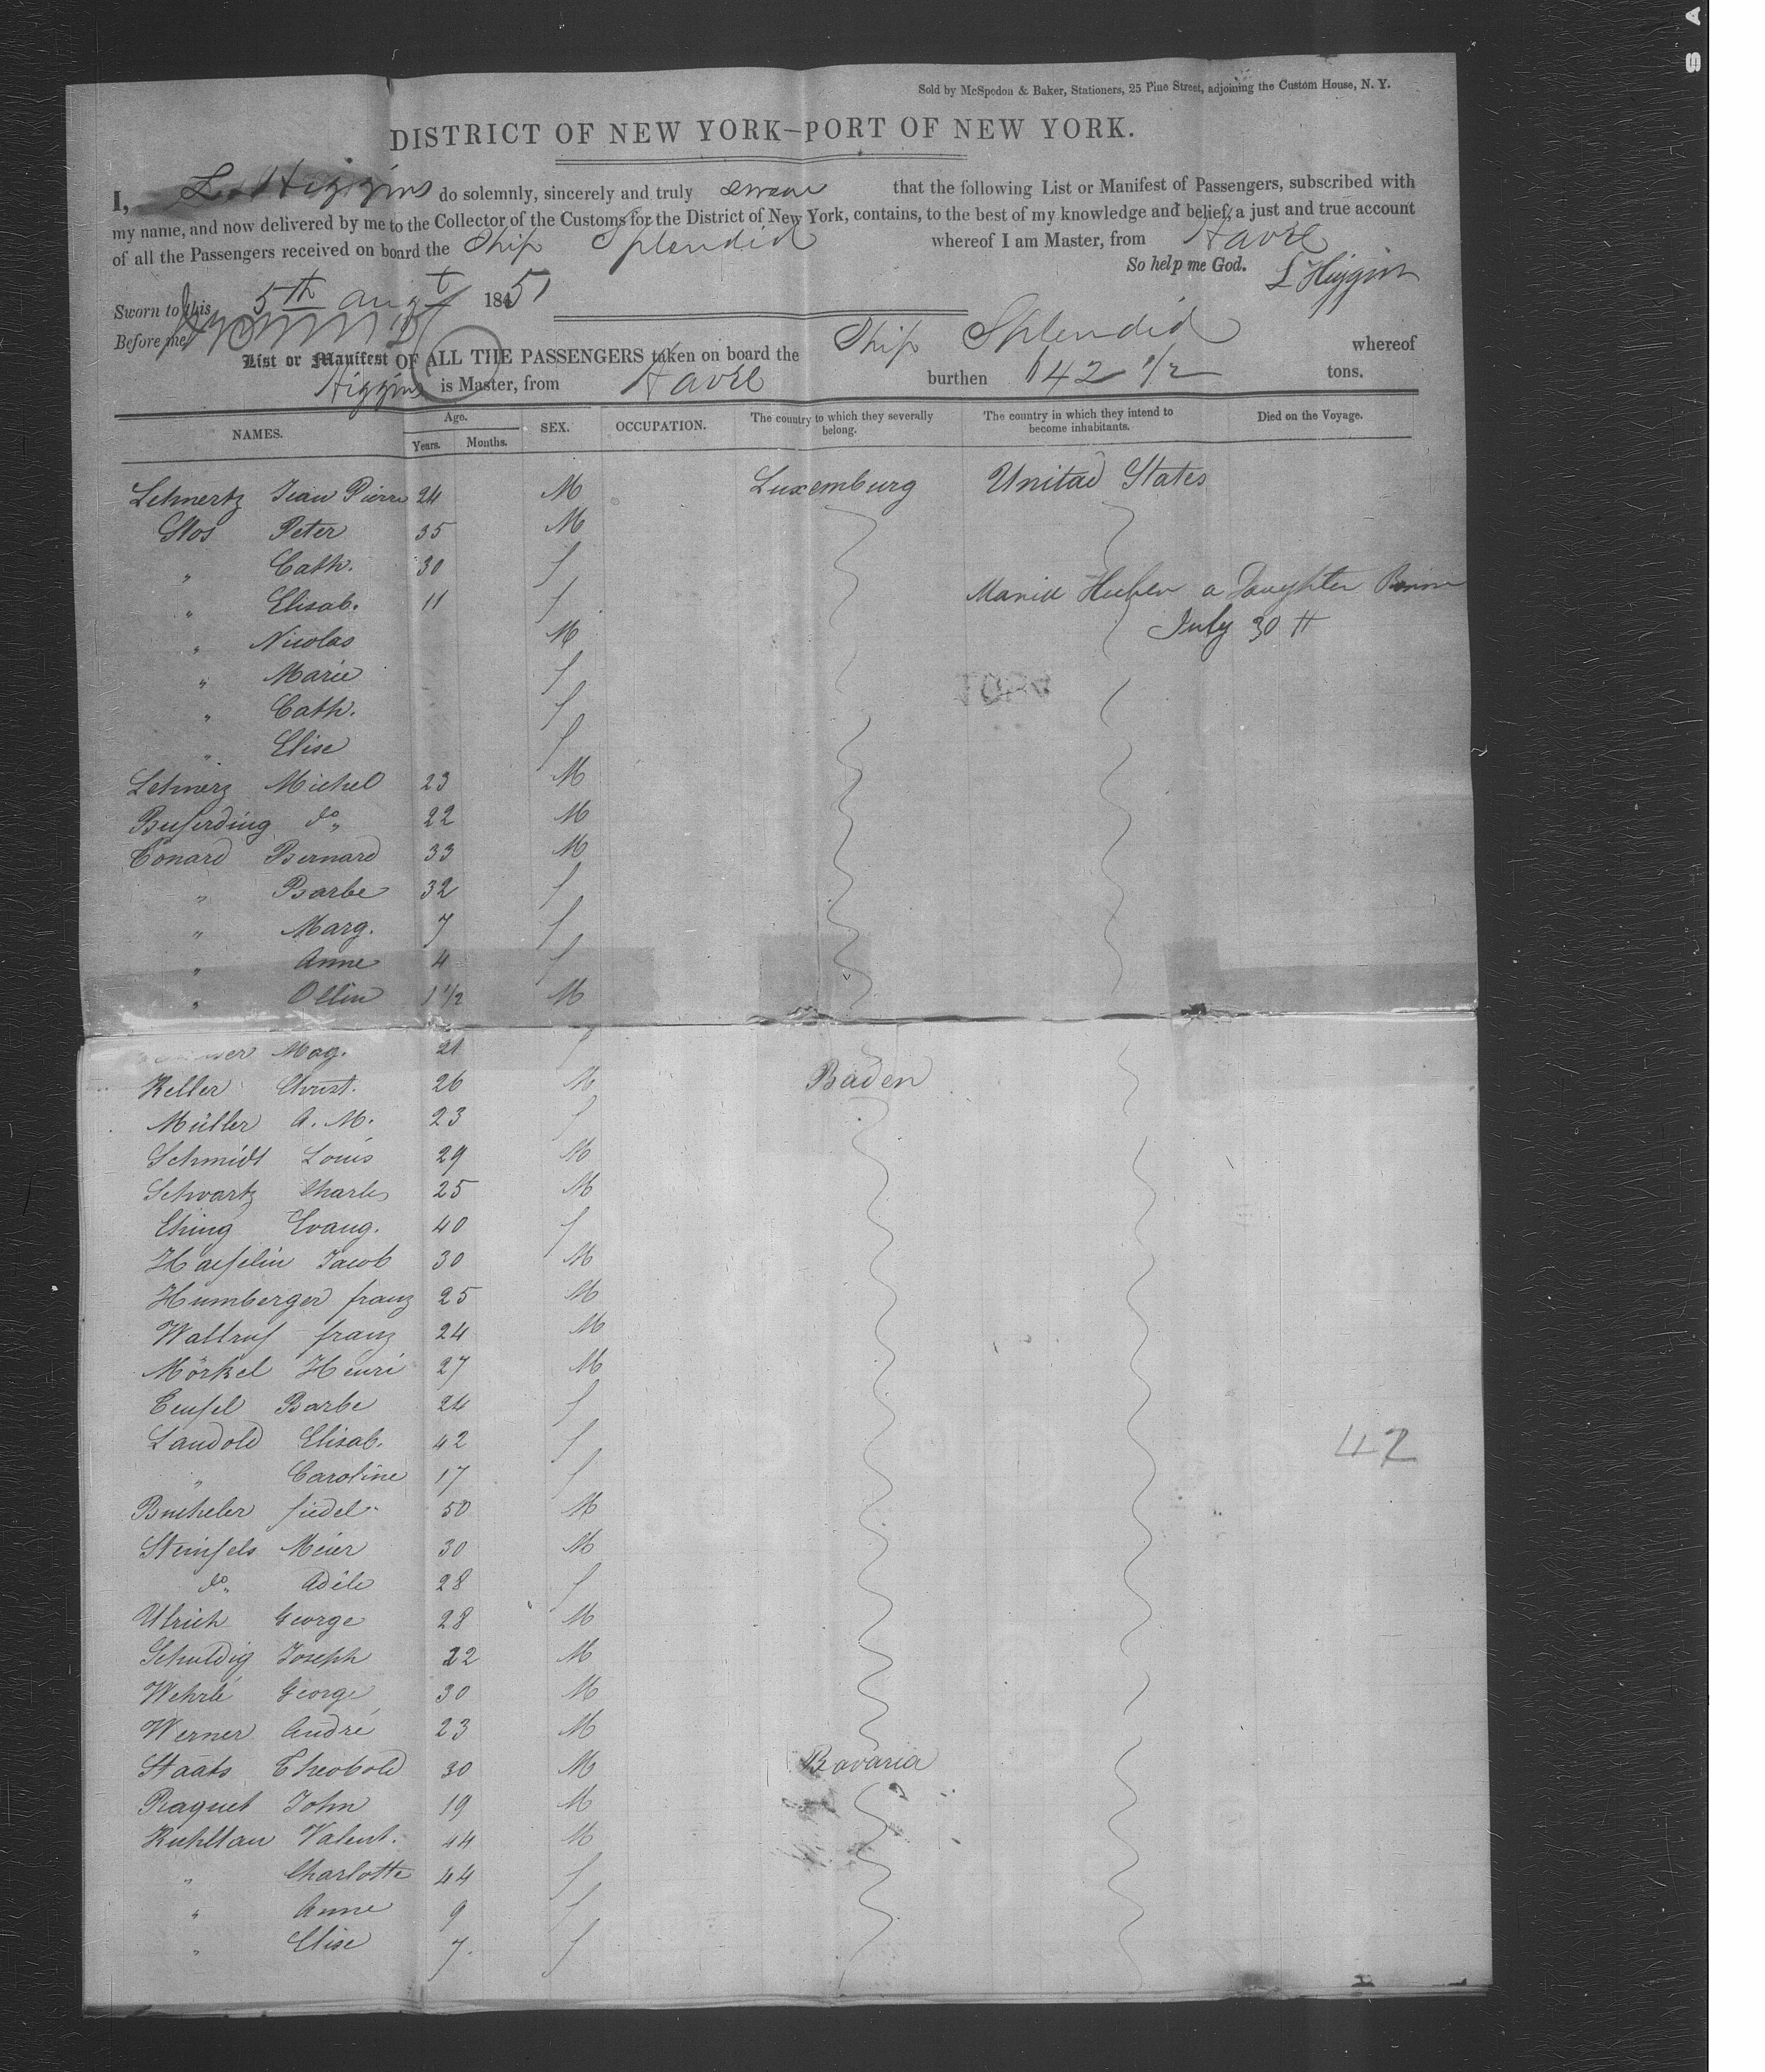 S A
Sold by McSpedon & Baker, Stationers, 25 Pine Street, adjoining the Custom House, N. Y.
DISTRICT OF NEW YORK–PORT OF NEW YORK.
I, L Higgins do solemnly, sincerely and truly swear that the following List or Manifest of Passengers, subscribed with
my name, and now delivered by me to the Collector of the Customs for the District of New York, contains, to the best of my knowledge and belief, a just and true account
of all the Passengers received on board the Ship Splendid whereof I am Master, from Havre
So help me God. L Higgins
Sworn to this 5th augt 1851
Before me
List or Manifest OF ALL THE PASSENGERS taken on board the Ship Splendid whereof
Higgins is Master, from Havre burthen 642 1/2 tons.
NAMES. Age. Years. Months. SEX. OCCUPATION. The country to which they severally belong. The country in which they intend to become inhabitants. Died on the Voyage.
Lehnertz Jean Pierre 24 M Luxemburg Unitad States
Glos Peter 35 M
" Cath. 30 f
" Elisab. 11 f
Huber a Daughter
" Nicolas M
July 30
" Marie f
" Cath. f
" Elise f
Lehnerz Michel 23 M
Buserding do " 22 M
Conard Bernard 33 M
" Barbe 32 f
" Marg. 7 f
" Anne 4 f
" Ollin 1 1/2 M
Mag. 21 f
Keller Christ. 26 M Baden
Müller A. M. 23 f
Schmidt Louis 29 M
Schvartz Charles 25 M
Ehing Evang. 40 f
Haefelin Jacob 30 M
Humberger franz 25 M
Waltruf franz 24 M
Mörkel Henri 27 M
Teufel Barbe 24 f
Landold Elisab. 42 f
42
" Caroline 17 f
Bucheler fidel 50 M
Steinfels Meier 30 M
do " Adèle 28 f
Ulrich George 28 M
Schuldig Joseph 22 M
Wehrlé George 30 M
Werner André 23 M
Staats Theobold 30 M Bavaria
Raquet John 19 M
Kuhltau Valent. 44 M
" Charlotte 44 f
" Anne 9 f
" Elise 7. f